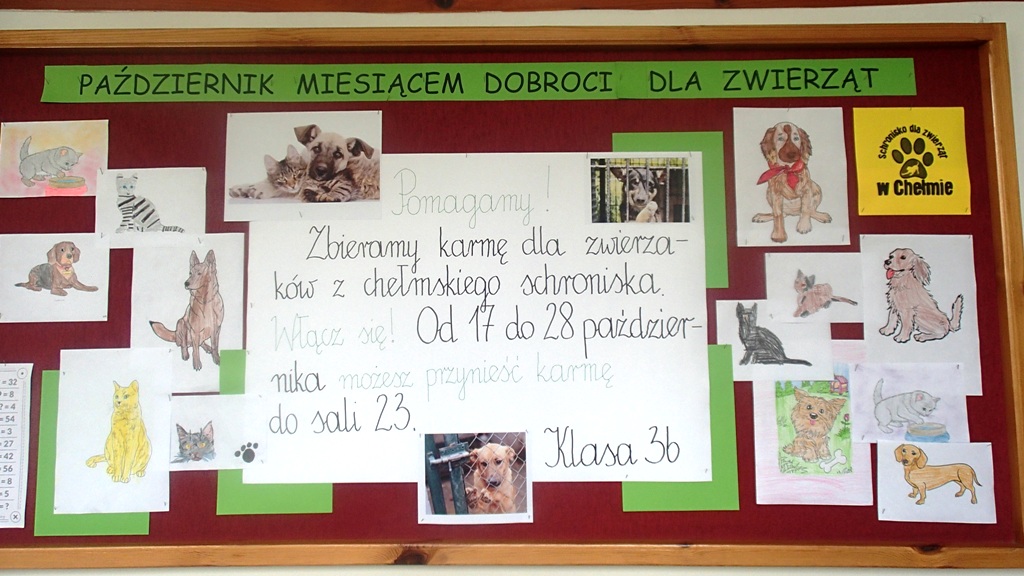 PAŹDZIERNIK MIESIĄCEM DOBROCI DLA ZWIERZĄT
Schronisko dla zwierząt
w Chełmie
Pomagamy!
Zbieramy karmę dla zwierza-
ków z chełmskiego schroniska.
Włącz się! Od 17 do 28 paździer-
nika możesz przynieść karmę
do sali 23.
Klasa 3b
= 32
= 8
? = 4
= 54
= 3
= 27
= 42
= 56
= 8
= 5
= ?